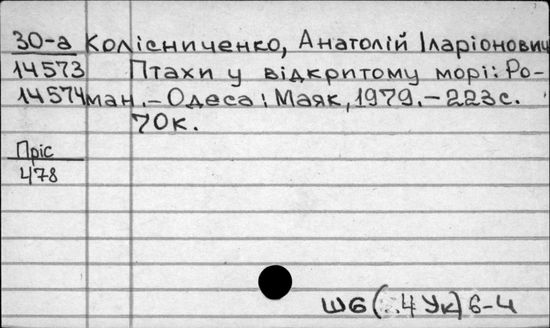 30-а Колісниченко, Анатолій Іларіонович
14573 Птахи у відкритому морі: Ро-
14574 ман. – Одеса: Маяк, 1979. – 223с.
70к.
Пріс
478
Ш6(4Ук)6-4